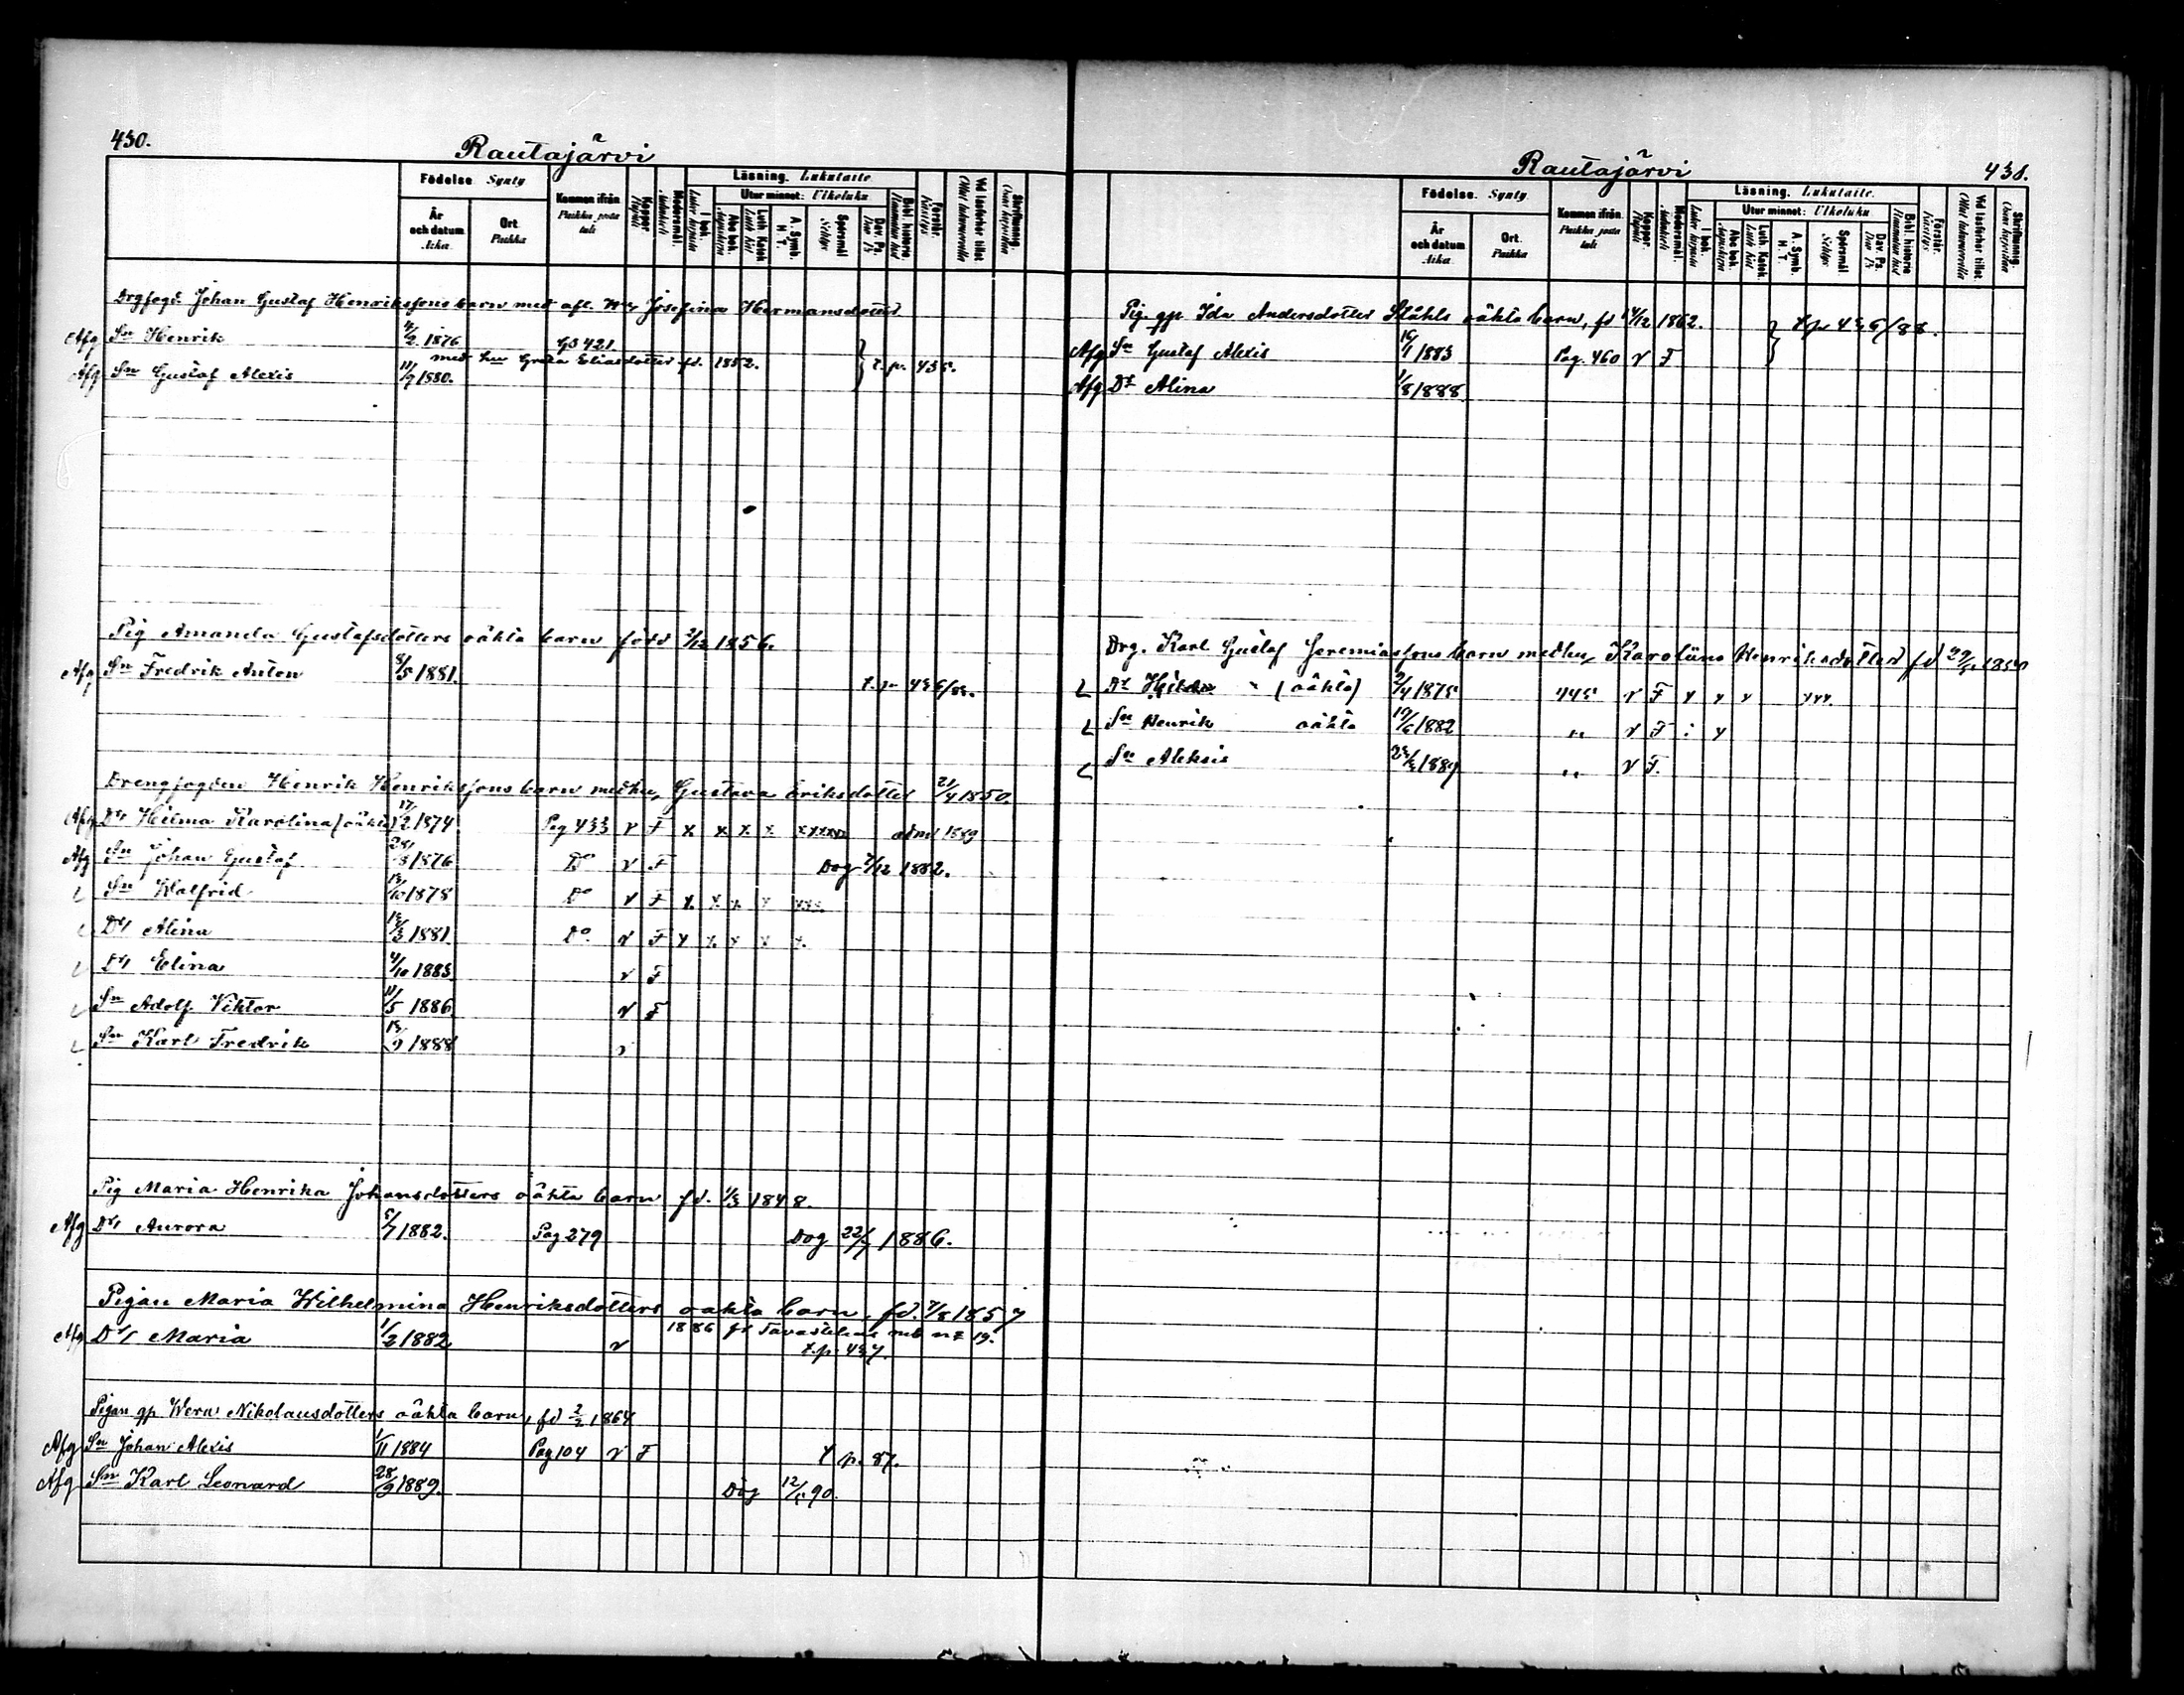 430.
Rautajärvi
Födelse. Synty
Kommen ifrån. Paikka josta tuli
Koppor. Rupuli
Modersmål.
Läsning. Lukutaito
I bok.
Utur minnet: Ulkoluku
Abc bok.
Luth. Katek.
A. Symb. H. T.
Spörsmål
Dav. Ps.
Bibl. historia
Förstår. Käsitys
Vid läsförhör tillst.
Skriftmning.
År och datum. Aika.
Ort. Paikka
Drgfogd. Johan Gustaf Henrikssons barn med afl. Josefina Hermansdotter
Afg Sn Henrik 1876 GB 421.
med hu Greta Eliasdotter fd. 1852.
Afg Sn Gustaf Alexis 11/9 1880. t. p. 435.
Pig Amanda Gustafsdotters oäkta barn född 1856.
Afg Sn Fredrik Anton 8/5 1881. t. p 436/88.
Drengfogden Henrik Henrikssons barn med hu, Gustava Eriksdotter 21/4 1850.
Afg Dr Hilma Karolina (oäkta) 17/2 1874 Pag 433 v F x x x x xxxxx adm 1889
Afg Sn Johan Gustaf 1876 Do v F Dog 7/12 1882.
Sn Walfrid 1878 Do v F x x x x xxx
Dr Alina 1881. Do v F x x x x x
Dr Elina 4/10 1883 v F
Sn Adolf Viktor 11/5 1886 v F
Sn Karl Fredrik 1888 v
Pig Maria Henrika Johansdotters oäkta barn fd. 1/3 1848.
Afg Dr Aurora 5/7 1882. Pag 279 Dog 22/7 1886.
Pigan Maria Wilhelmina Henriksdotters oäkta barn, fd. 7/8 1857
1886 fr Tavastehus mb nr 19.
Afg Dr Maria 1/2 1882 v t. p. 437.
Pigan gp. Wera Nikolausdotters oäkta barn, fd 2/2 1864
Afg Sn Johan Alexis 1/11 1884 Pag 104 v F t p. 87.
Afg Sn Karl Leonard 28/9 1889. Dog 12/5 90.
Rautajärvi
438.
Födelse. Synty
Kommen ifrån. Paikka josta tuli
Koppor. Rupuli
Modersmål.
Läsning. Lukutaito.
I bok.
Utur minnet: Ulkoluku
Abc bok.
Luth. Katek.
A. Symb. H. T.
Spörsmål.
Dav. Ps.
Bibl. historia
Förstår. Käsitys
Vid läsförhör tillst.
Skriftmning.
År och datum. Aika.
Ort. Paikka
Pig. gp. Ida Andersdotter Ståhls oäkta barn, fd 14/12 1862. t p 436/88.
Afg Sn Gustaf Alexis 16/1 1883 Pag. 460 v F
Afg Dr Alina 1/8 1888
Drg. Karl Gustaf Jeremiassons barn med hu, Karolina Henriksdotter fd
Dr (oäkta) 2/4 1875 445 v F x x x xxx
Sn Henrik oäkta 19/6 1882 „ v F : x
Sn Aleksis 1889 „ v F.